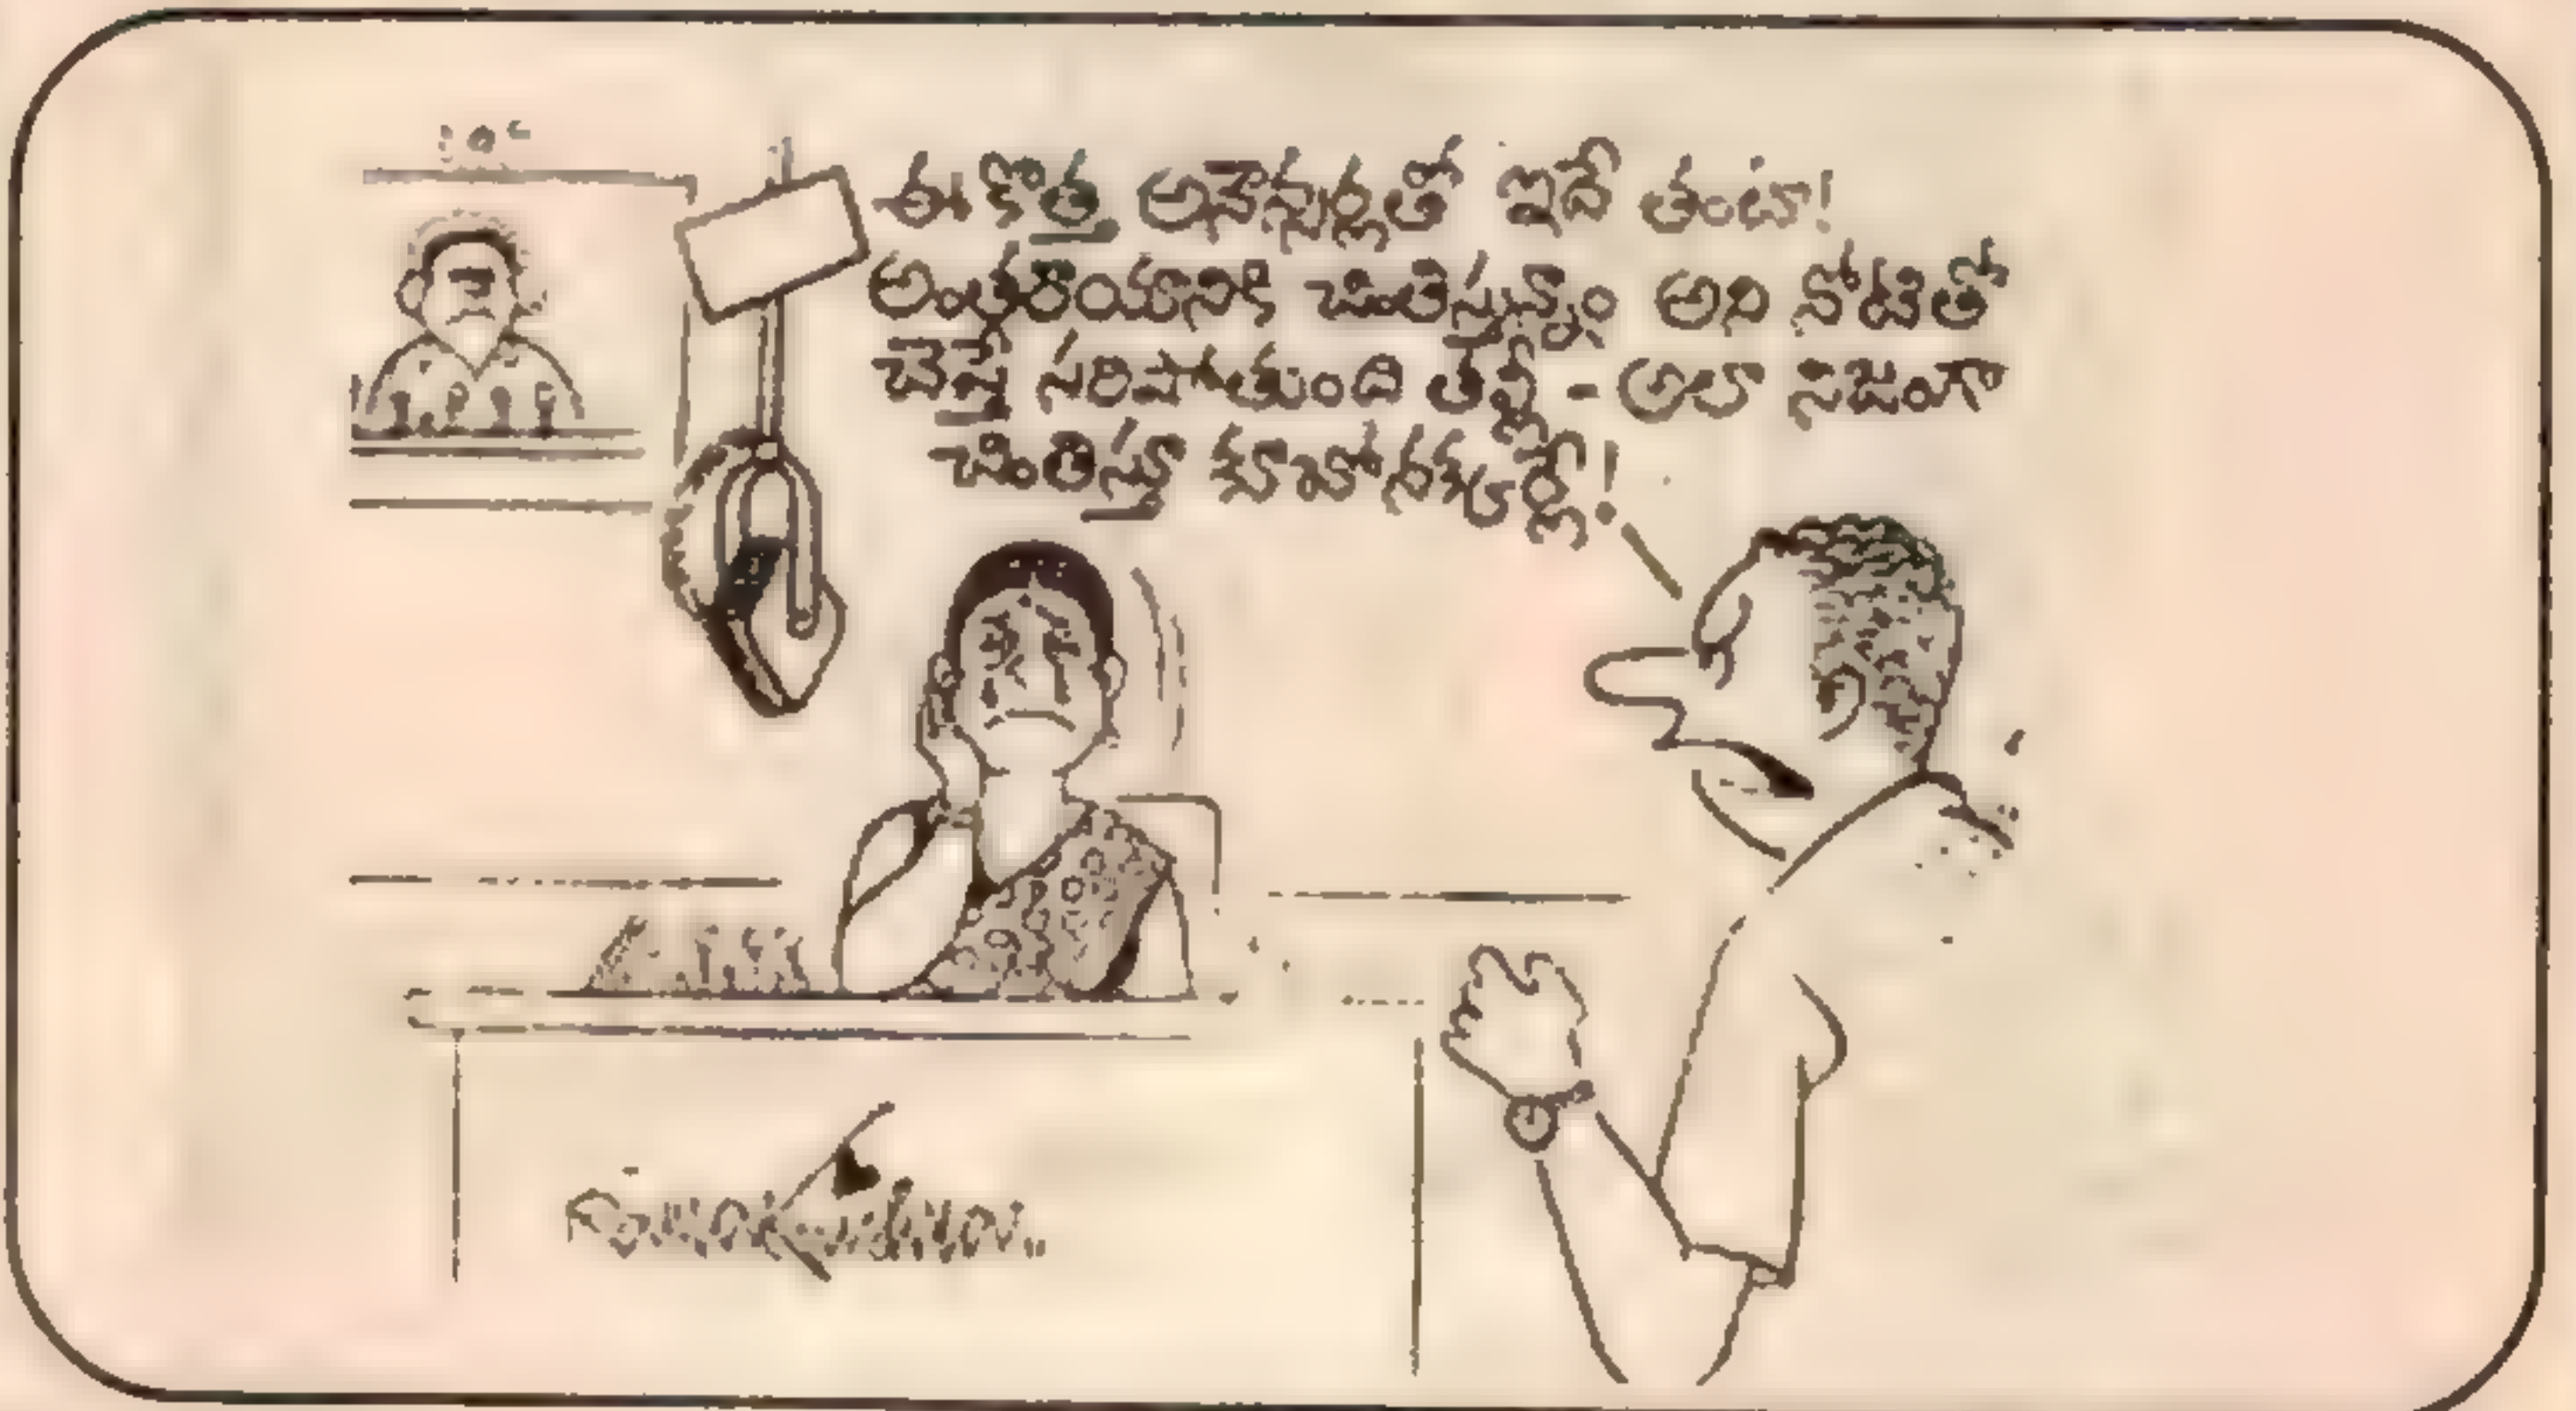 ఈ కొత్త అనౌన్సర్లతో ఇదే తంటా!
అంతరాయానికి చింతిస్తున్నాం అని నోటితో
చెప్తే సరిపోతుంది తల్లీ - అలా నిజంగా
చింతిస్తూ కూచోనక్కర్లే!